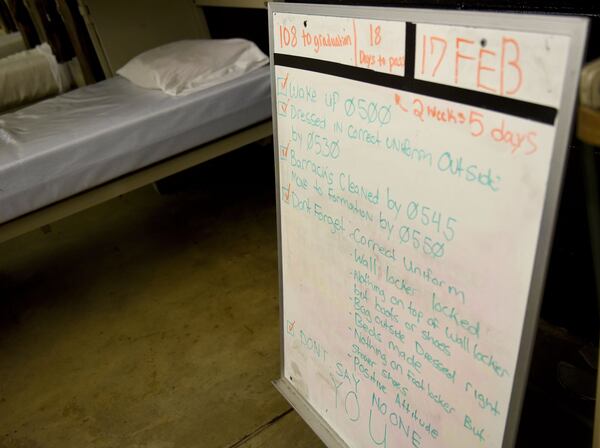 108 to graduation
18
Days to pass
17 FEB
2 weeks 5 days
Wake up 0500
Dressed in correct uniform outside
by 0530
Barracks Cleaned by 0545
Move to Formation by 0550
Dont Forget - Correct uniform
- Wall locker locked
- Nothing on top of wall locker
but boots or shoes
- Bag outside Dressed right
- Beds made
- Nothing on Foot locker But
shower shoes
- Positive Attitude
DONT SAY NO ONE
YOU